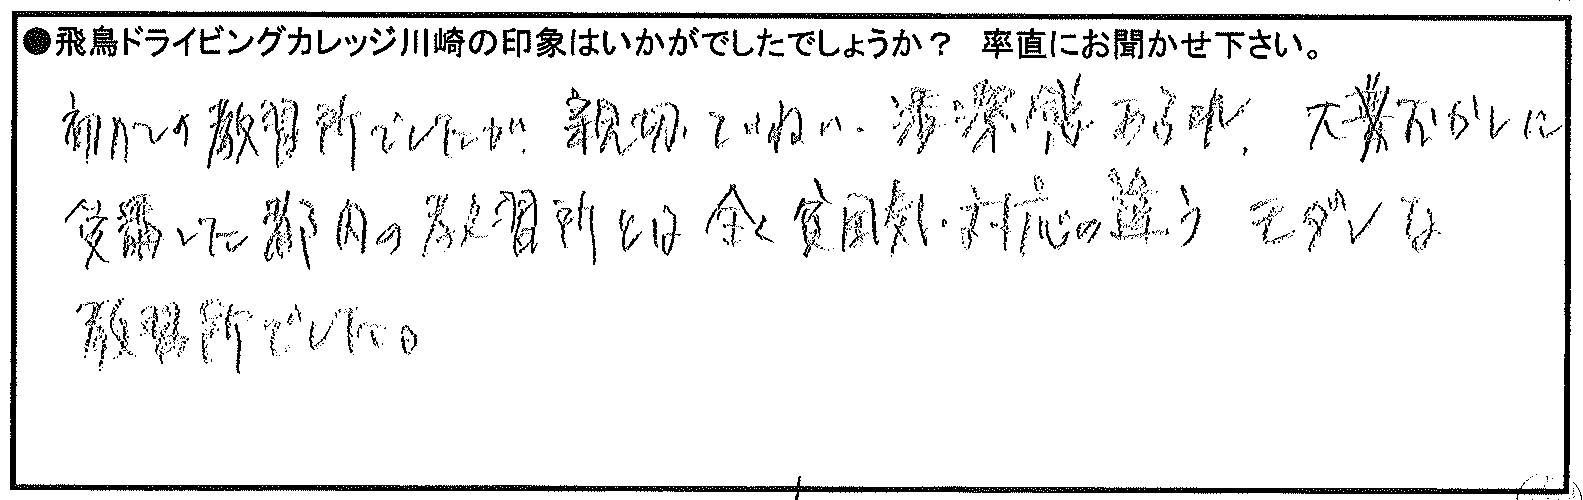 ●飛鳥ドライビングカレッジ川崎の印象はいかがでしたでしょうか？ 率直にお聞かせ下さい。
初めての教習所でしたが、親切・ていねい・清潔感あふれ、大昔に
受講した都内の教習所とは全く雰囲気・対応の違うモダンな
教習所でした。